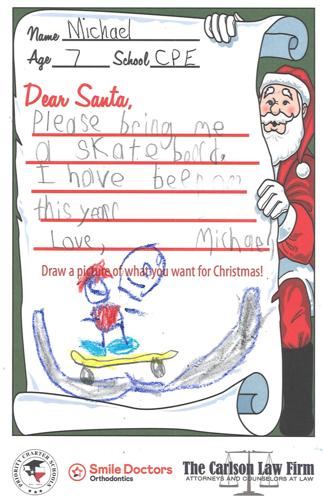 Name Michael
Age 7 School CPE
Dear Santa,
Please bring me
a skate board.
I have
this year
Love, Michael
Draw a picture of what you want for Christmas!
PRIORITY CHARTER SCHOOLS
Smile Doctors
Orthodontics
The Carlson Law Firm
ATTORNEYS AND COUNSELORS AT LAW